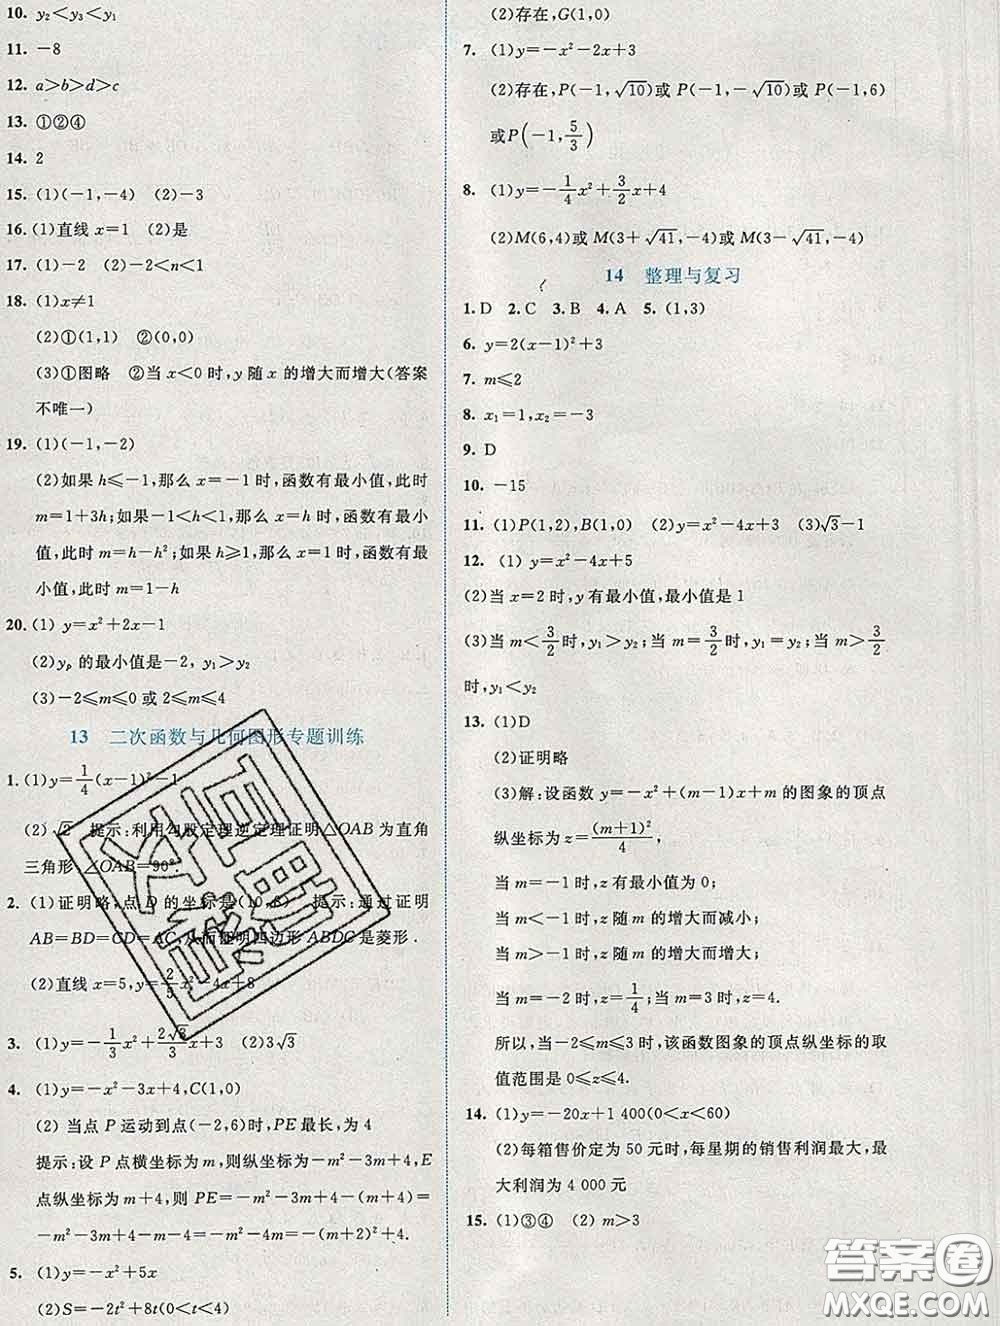 10. y₂＜y₃＜y₁
11. －8
12. a＞b＞d＞c
13. ①②④
14. 2
15. (1)(－1,－4) (2)－3
16. (1)直线 x＝1 (2)是
17. (1)－2 (2)－2＜n＜1
18. (1)x≠1
(2)①(1,1) ②(0,0)
(3)①图略 ②当 x＜0 时,y 随 x 的增大而增大(答案
不唯一)
19. (1)(－1,－2)
(2)如果 h⩽－1,那么 x＝－1 时,函数有最小值,此时
m＝1＋3h;如果－1＜h＜1,那么 x＝h 时,函数有最小
值,此时 m＝h－h²;如果 h⩾1,那么 x＝1 时,函数有最
小值,此时 m＝1－h
20. (1) y＝x²＋2x－1
(2)yₚ 的最小值是－2, y₁＞y₂
(3)－2⩽m⩽0 或 2⩽m⩽4
13 二次函数与几何图形专题训练
1. (1)y＝1/4(x－1)²－1
(2) √2 提示:利用勾股定理逆定理证明△OAB 为直角
三角形,∠OAB＝90°.
2. (1)证明略,点 D 的坐标是(10,8) 提示:通过证明
AB＝BD＝CD＝AC,从而证明四边形 ABDC 是菱形.
(2)直线 x＝5,y＝2/5x²－4x＋8
3. (1)y＝－1/3x²＋2√3/3x＋3 (2)3√3
4. (1)y＝－x²－3x＋4,C(1,0)
(2) 当点 P 运动到点(－2,6)时,PE最长,为 4
提示:设 P 点横坐标为 m,则纵坐标为－m²－3m＋4,E
点纵坐标为 m＋4,则 PE＝－m²－3m＋4－(m＋4)＝
－m²－3m＋4－m－4＝－m²－4m＝－(m＋2)²＋4.
5. (1)y＝－x²＋5x
(2)S＝－2t²＋8t(0＜t＜4)
(2)存在,G(1,0)
7. (1)y＝－x²－2x＋3
(2)存在,P(－1,√10)或 P(－1,－√10)或 P(－1,6)
或 P(－1,5/3)
8. (1)y＝－1/4x²＋3/2x＋4
(2)M(6,4)或 M(3＋√41,－4)或 M(3－√41,－4)
14 整理与复习
1. D 2. C 3. B 4. A 5. (1,3)
6. y＝2(x－1)²＋3
7. m⩽2
8. x₁＝1,x₂＝－3
9. D
10. －15
11. (1)P(1,2),B(1,0) (2)y＝x²－4x＋3 (3)√3－1
12. (1) y＝x²－4x＋5
(2)当 x＝2时,y有最小值,最小值是 1
(3)当 m＜3/2时,y₁＞y₂;当 m＝3/2时,y₁＝y₂;当 m＞3/2
时,y₁＜y₂
13. (1)D
(2)证明略
(3)解:设函数 y＝－x²＋(m－1)x＋m 的图象的顶点
纵坐标为 z＝(m＋1)²/4,
当 m＝－1 时,z 有最小值为 0;
当 m＜－1 时,z 随 m 的增大而减小;
当 m＞－1 时,z 随 m 的增大而增大,
当 m＝－2 时,z＝1/4;当 m＝3 时,z＝4.
所以,当－2⩽m⩽3 时,该函数图象的顶点纵坐标的取
值范围是 0⩽z⩽4.
14. (1)y＝－20x＋1 400(0＜x＜60)
(2)每箱售价定为 50 元时,每星期的销售利润最大,最
大利润为 4 000 元
15. (1)③④ (2) m＞3
答案圈
MXQE.COM